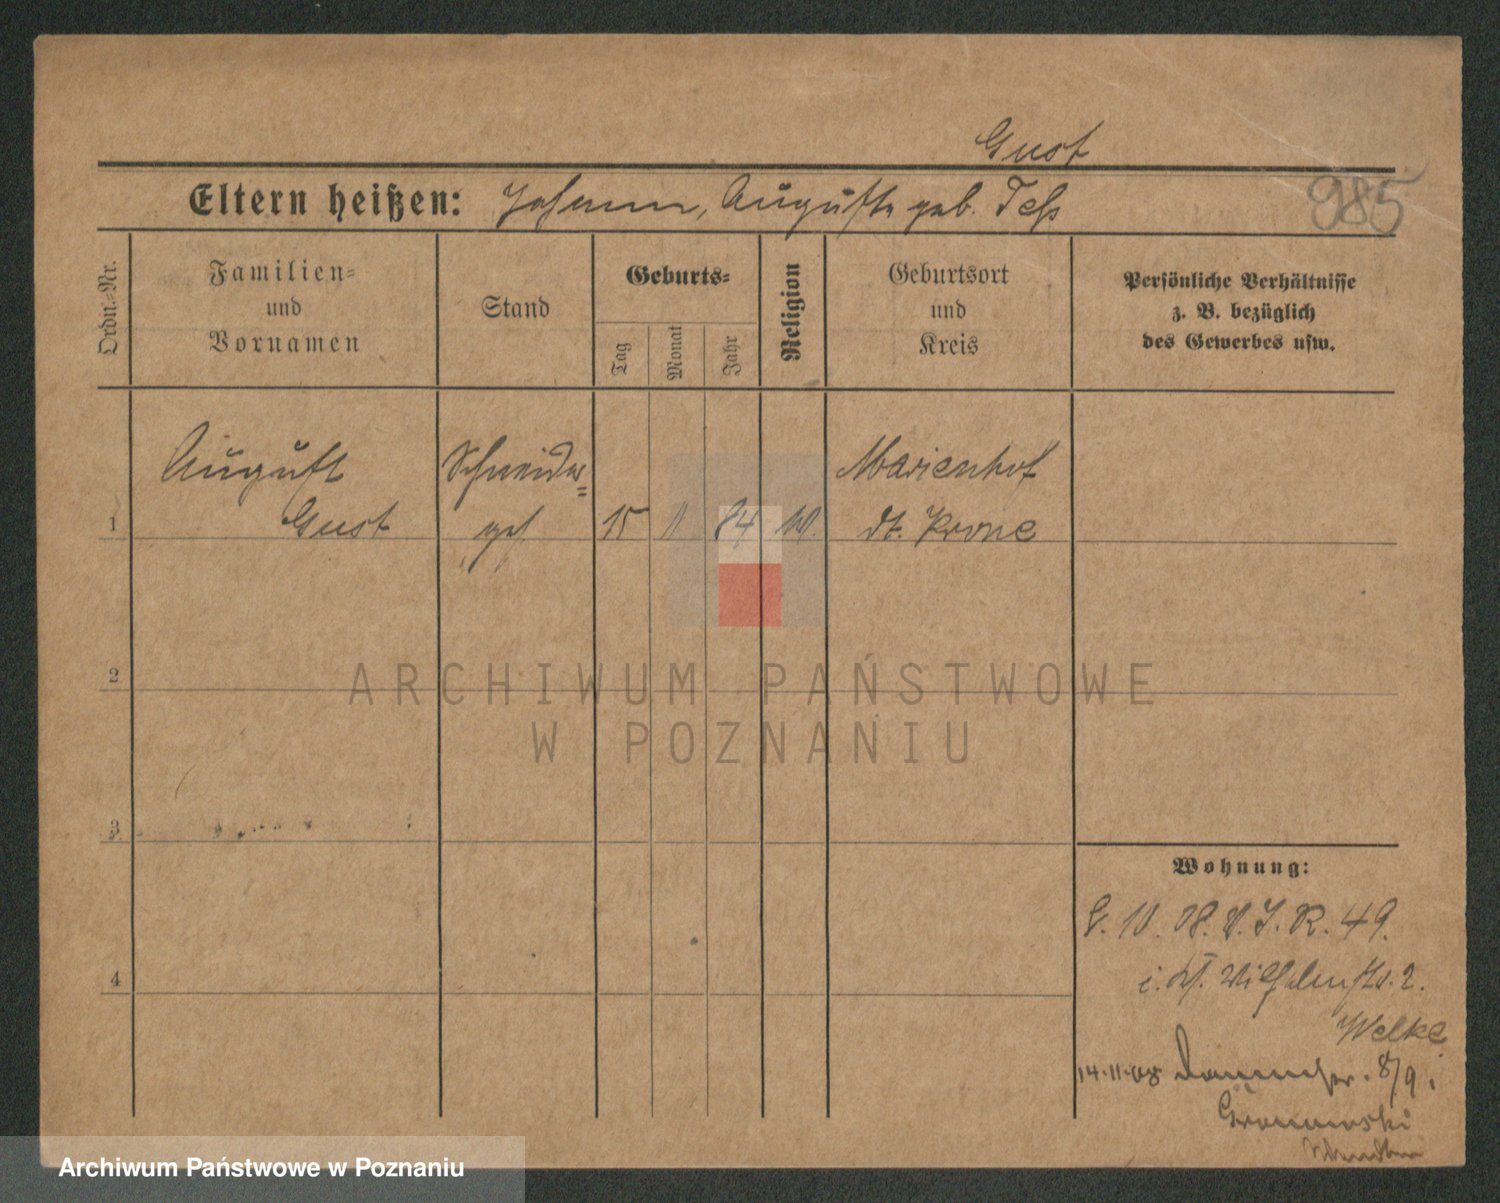 Gust
Eltern heißen: Johann, Auguste geb. Tess
985
Ordn.-Nr.
Familien-
und
Vornamen
Stand
Geburts-
Tag
Monat
Jahr
Religion
Geburtsort
und
Kreis
Persönliche Verhältnisse
z. B. bezüglich
des Gewerbes usw.
1
August
Gust
Schneider-
15
84
Marienhof
Dt. Krone
2
3
4
ARCHIWUM PAŃSTWOWE
W POZNANIU
Wohnung:
08. R. 49.
Wilhelmstr. 2.
Welke
14.11.08 8/9.
Archiwum Państwowe w Poznaniu